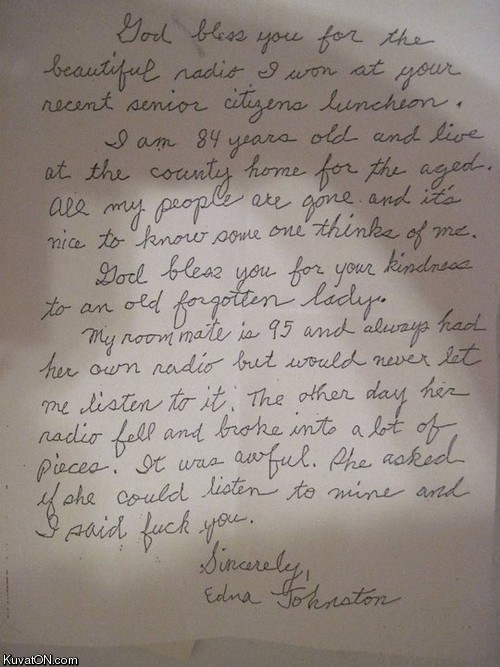 God bless you for the
beautiful radio I won at your
recent senior citizens luncheon.
I am 84 years old and live
at the county home for the aged.
All my people are gone and it's
nice to know some one thinks of me.
God bless you for your kindness
to an old forgotten lady.
My roommate is 95 and always had
her own radio but would never let
me listen to it. The other day her
radio fell and broke into a lot of
pieces. It was awful. She asked
if she could listen to mine and
I said fuck you.
Sincerely,
Edna Johnston
KuvatON.com